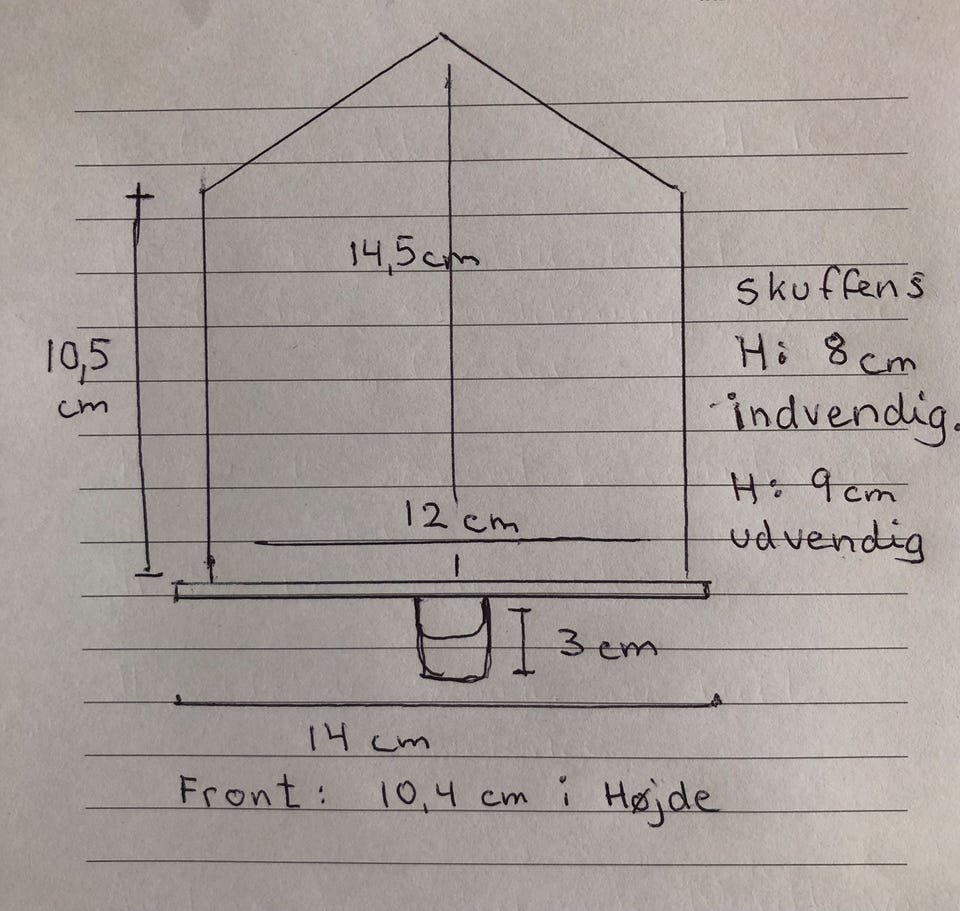 14,5cm
10,5
cm
skuffens
H: 8 cm
indvendig.
H: 9 cm
udvendig
12 cm
3 cm
14 cm
Front: 10,4 cm i Højde